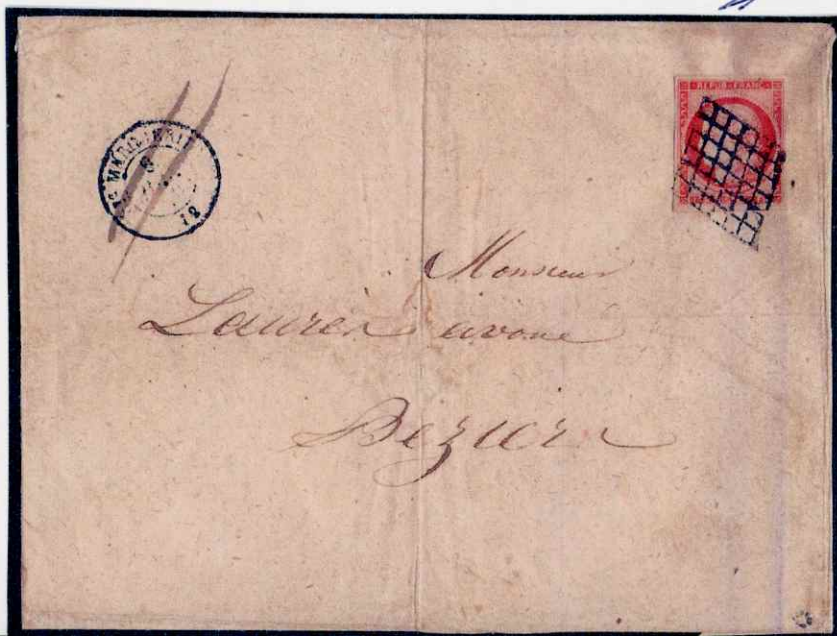 REPUB·FRANC·
8
12
Monsieur
Laurès avoué
Beziers